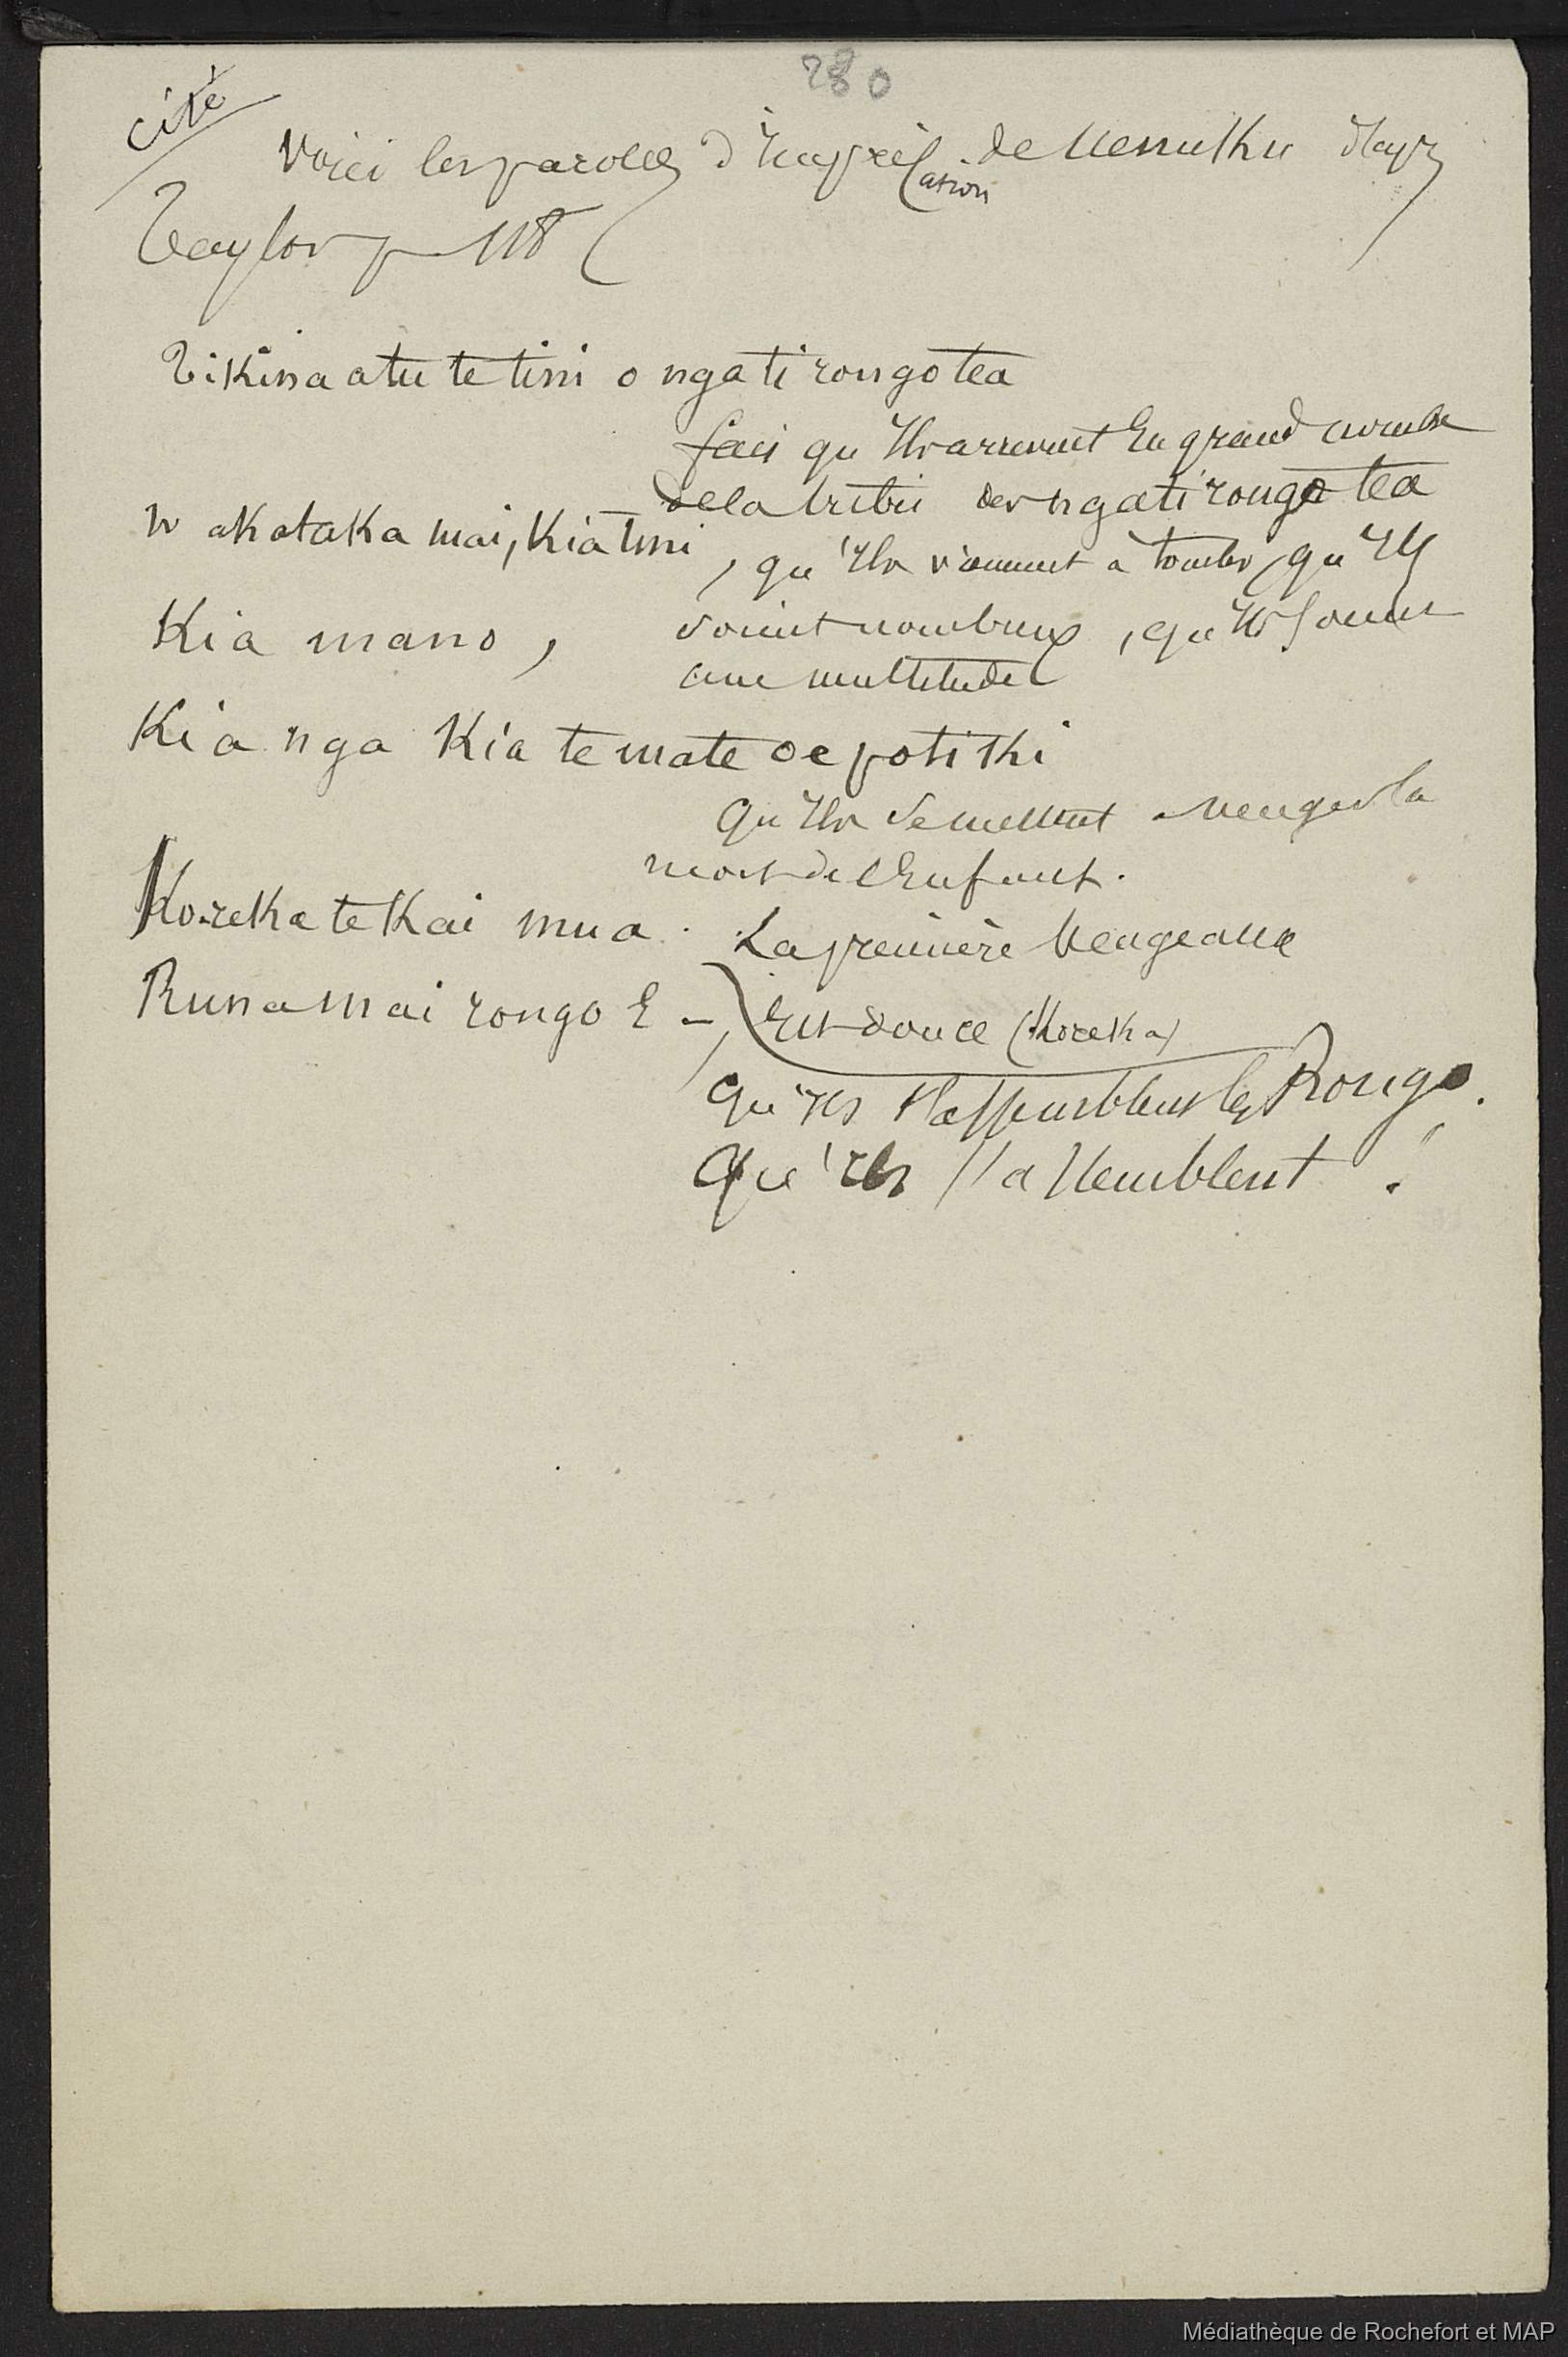 280
cité
Voici les paroles d'Imprécation de Uenuku d'ap
Taylor p 118
Tikina atu te tini o ngati rongotea
fais qu'Ils arrivent En grand nombre
de la tribu des ngati rongo tea
Wakataka mai, Kia tini
, qu'Ils viennent à tomber, qu'Ils
Kia mano,
soient nombreux, qu'Ils soient
une multitude
Kia nga Kia te mate oe potiki
Qu'Ils se mettent a venger la
mort de l'Enfant.
Ko reka te Kai mua. La première Vengeance
Runa mai rongo E –, Est douce (Ko reka)
Qu'Ils s'assemblent les Rongo.
Qu'Ils s'assemblent.
Médiathèque de Rochefort et MAP